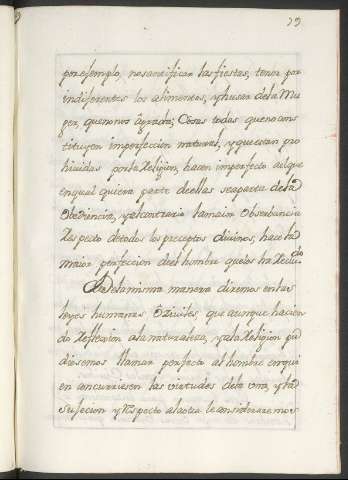 79
por exemplo, no santificar las fiestas, tener por
indiferentes los alimentos, y husar de la Mu
ger, que no nos agrada; Cosas todas que no cons
tituyen imperfeccion natural, y que estan pro
hividas por la Religion, hacen imperfecto al que
en qual quiera parte de ellas se aparta de la
Obediencia, y al contrario la maior Observancia
respecto de todos los preceptos divinos, hace la
maior perfeccion del hombre que los ha recivido
De la misma manera diremos en las
leyes humanas Civiles que aunque hacien
do reflexion a la naturaleza, y a la Religion pu
diesemos llamar perfecto al hombre en qui
en concurriesen las virtudes de la una, y la
sujecion y respecto a la otra le consideraremos